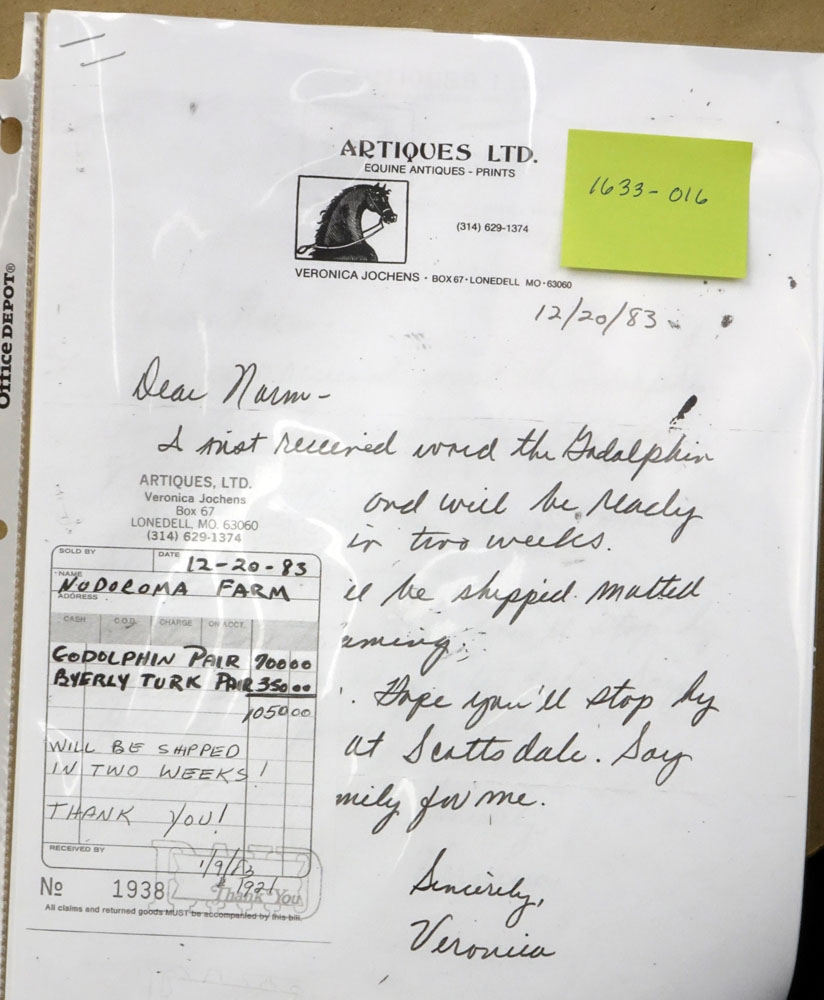 ARTIQUES LTD.
EQUINE ANTIQUES - PRINTS
(314) 629-1374
VERONICA JOCHENS · BOX 67 · LONEDELL MO · 63060
1633-016
Office DEPOT®
12/20/83
Dear Norm -
I just received word the Godolphin
and will be ready
in two weeks.
ll be shipped matted
aming.
. Hope you'll stop by
at Scottsdale. Say
mily for me.
Sincerely,
Veronica
ARTIQUES, LTD.
Veronica Jochens
Box 67
LONEDELL, MO. 63060
(314) 629-1374
SOLD BY DATE 12-20-83
NAME NODOROMA FARM
ADDRESS
CASH C.O.D. CHARGE ON ACCT.
GODOLPHIN PAIR 700 00
BYERLY TURK PAIR 350 00
1050 00
WILL BE SHIPPED
IN TWO WEEKS!
THANK YOU!
RECEIVED BY
PAID
1/9/83
# 1921
Thank You
No 1938
All claims and returned goods MUST be accompanied by this bill.